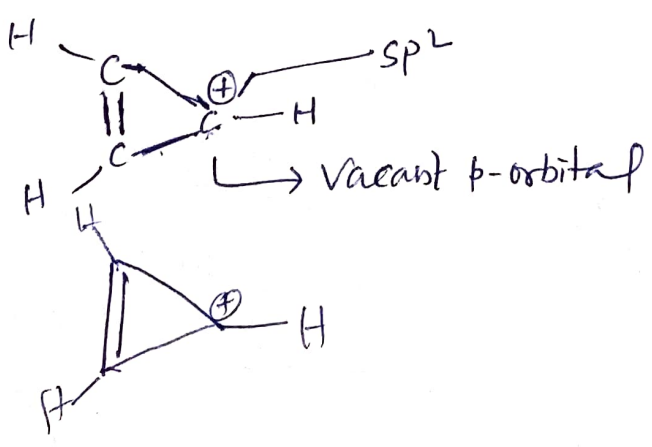 H
C
⊕
sp²
C
H
C
H
Vacant p-orbital
H
⊕
H
H